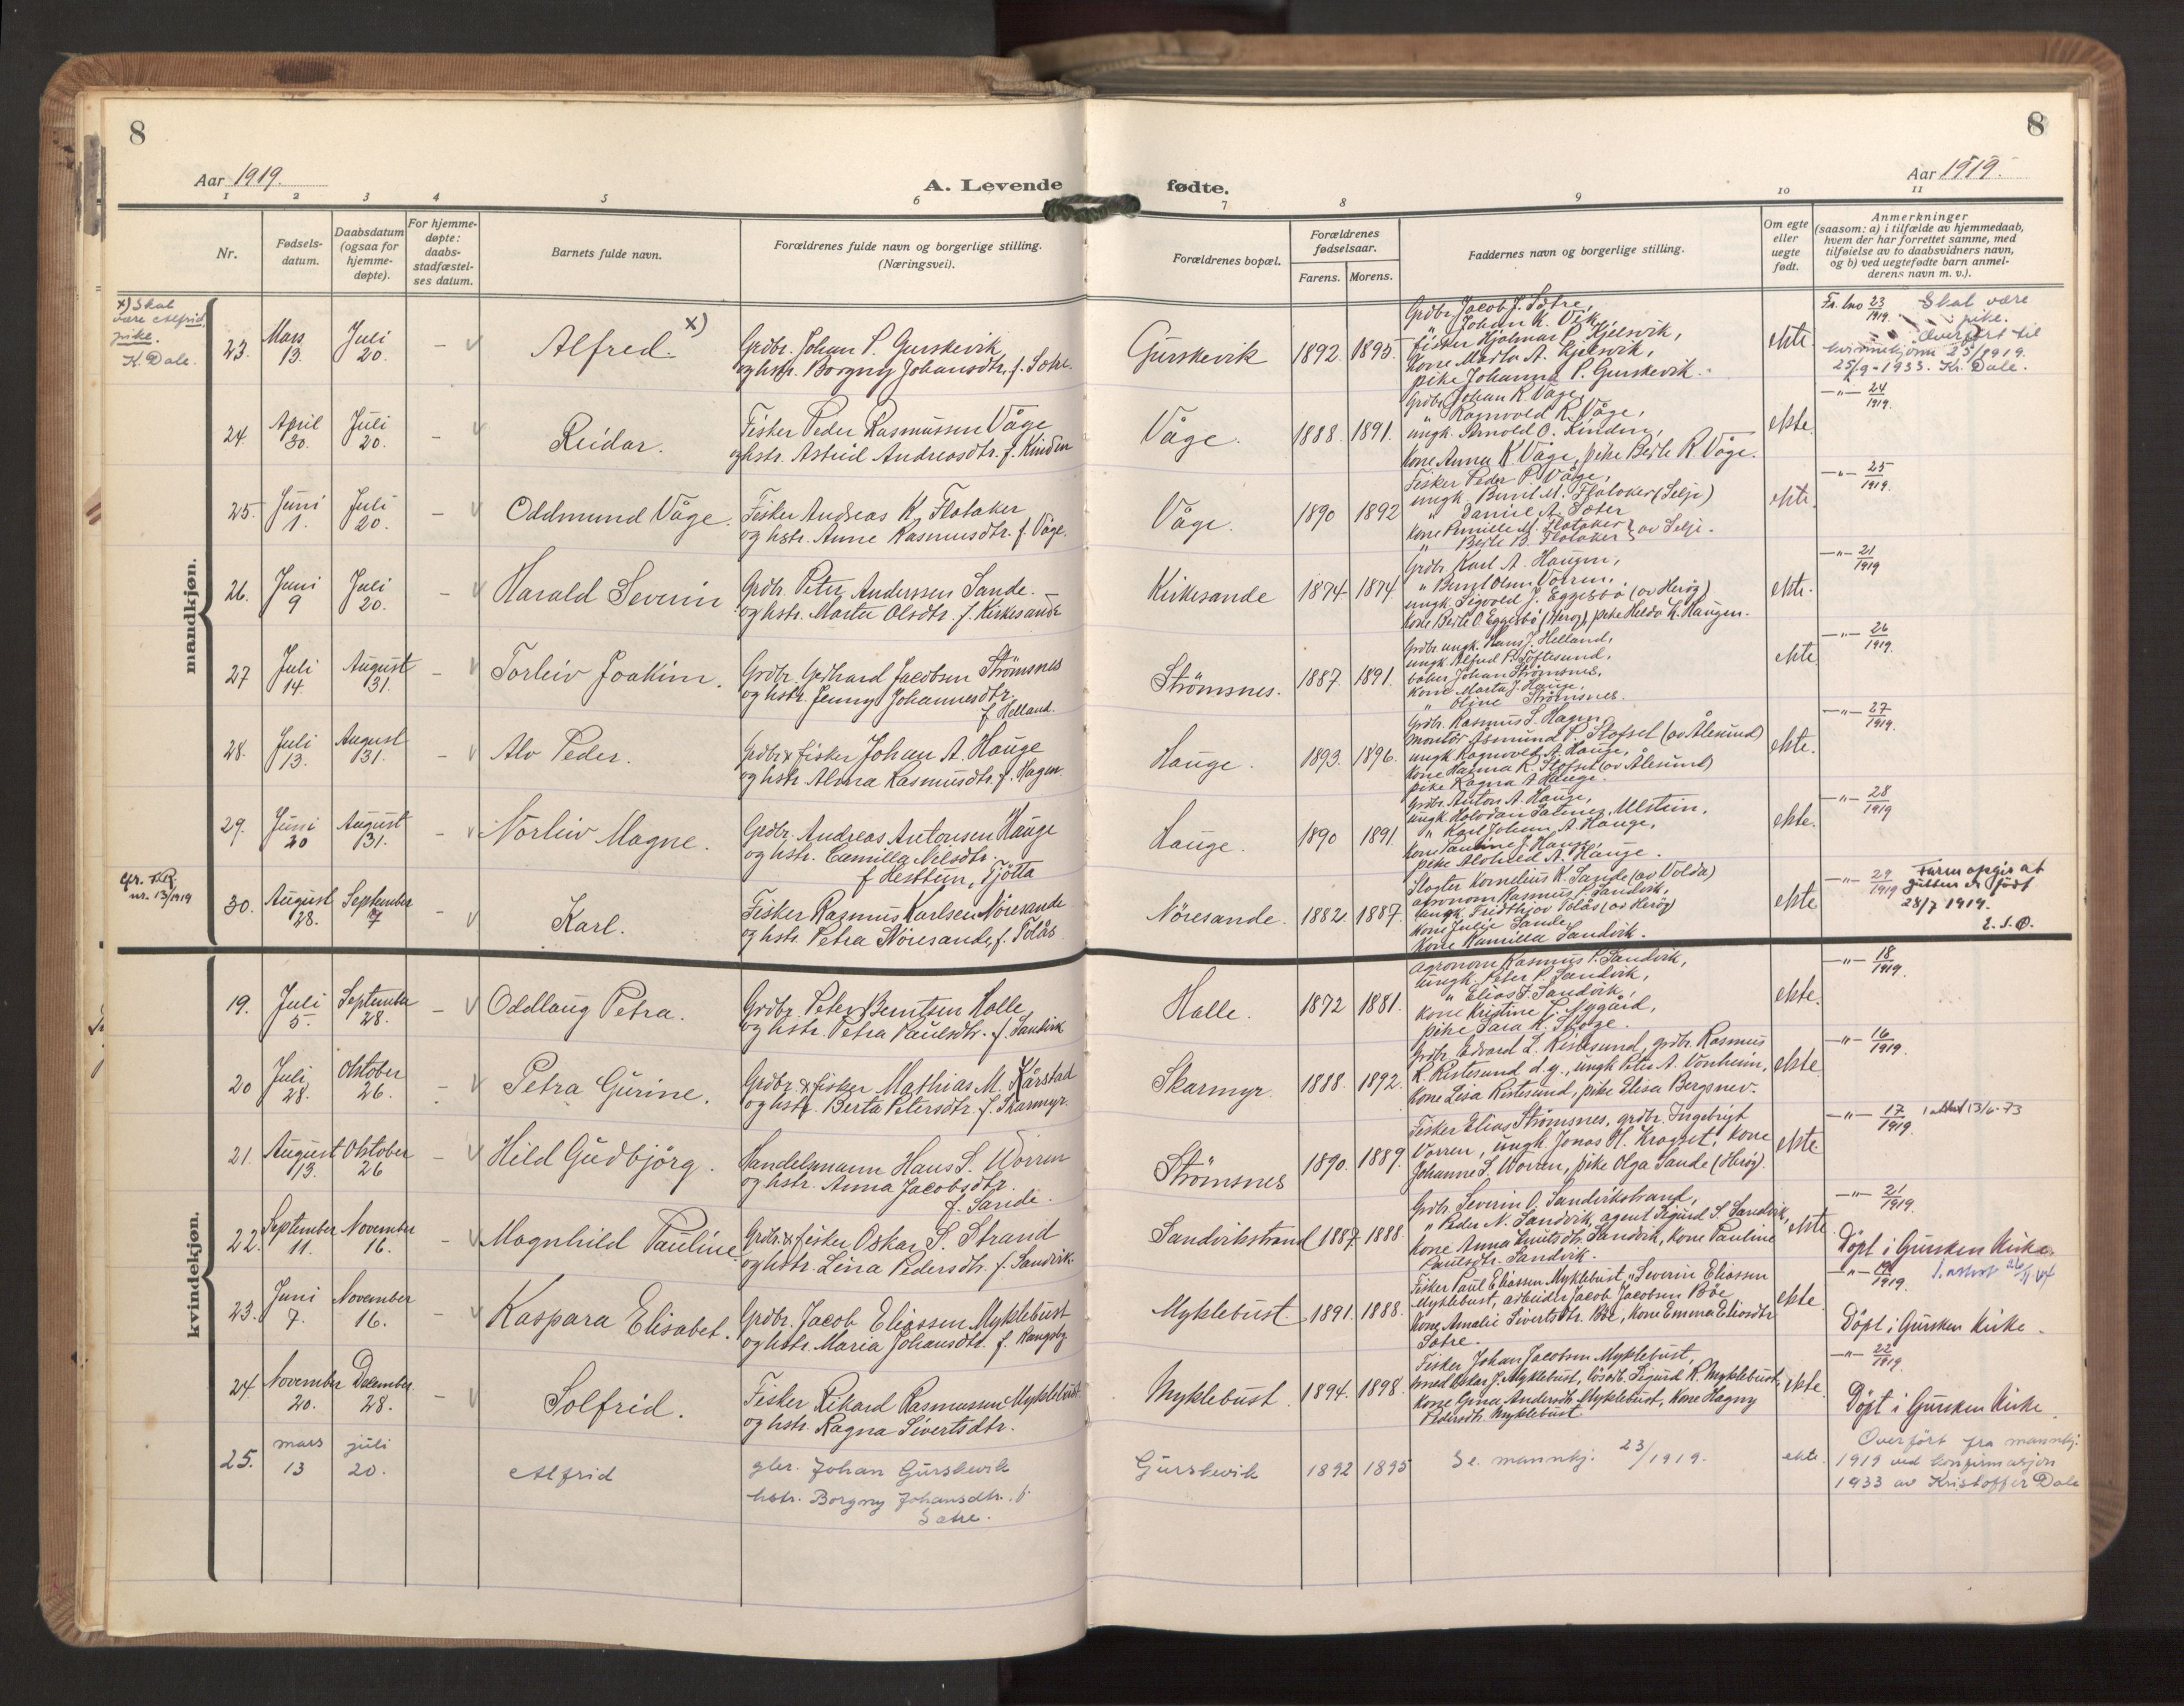 8
8
Aar 1919.
A. Levende fødte.
Aar 1919.
1 2 3 4 5 6 7 8 9 10 11
Nr.
Fødsels-
datum.
Daabsdatum
(ogsaa for
hjemme-
døpte).
For hjemme-
døpte:
daabs-
stadfæstel-
ses datum.
Barnets fulde navn.
Forældrenes fulde navn og borgerlige stilling.
(Næringsvei).
Forældrenes bopæl.
Forældrenes
fødselsaar.
Farens. Morens.
Faddernes navn og borgerlige stilling.
Om egte
eller
uegte
født.
Anmerkninger
(saasom: a) i tilfælde av hjemmedaab,
hvem der har forrettet samme, med
tilføielse av to daabsvidners navn,
og b) ved uegtefødte barn anmel-
derens navn m. v.).
mandkjøn.
x) Skal
være Alfrid,
pike.
K. Dale.
23. Mars 13. Juli 20. - Alfred. x)
Grdbr. Johan P. Gurskevik
og hstr. Borgny Johansdtr. f. Sætre.
Gurskevik 1892. 1895.
Grdbr. Jacob J. Sætre,
" Johan K. Vik,
fisker Hjalmar P. Kjelsvik,
kone Marta A. Kjelsvik,
pike Johanna P. Gurskevik.
ekte.
23/1919. Skal være
pike.
Overført til
kvinnekjønn 25/1919.
25/9-1933. Kr. Dale.
24. April 30. Juli 20. - Reidar.
Fisker Peder Rasmussen Våge
og hstr. Astrid Andreasdtr. f. Kinden
Våge. 1888. 1891.
Grdbr. Johan R. Våge,
" Ragnvald R. Våge,
ungk. Arnold O. Kinden,
kone Anna K. Våge, pike Berte R. Våge.
ekte.
-"- 24/1919.
25. Juni 1. Juli 20. - Oddmund Våge.
Fisker Andreas K. Flatøker
og hstr. Anne Rasmusdtr. f. Våge.
Våge. 1890 1892
Fisker Peder P. Våge,
ungk. Berent M. Flatøker (Selje)
" Daniel A. Sæter
kone Pernille M. Flatøker
" Berte B. Flatøker av Selje.
ekte.
-"- 25/1919.
26. Juni 9 Juli 20. - Harald Severin
Grdbr. Peter Anderssen Sande.
og hstr. Marta Olsdtr. f. Kirkesande
Kirkesande 1874 1874.
Grdbr. Karl A. Haugen,
" Bernt Olsen Vorren,
ungk. Sigvald J. Eggesbø (av Herøy)
kone Berte O. Eggesbø (Herøy), pike Helda K. Haugen.
ekte.
-"- 21/1919
27 Juli 14. August 31. - Torleiv Joakim.
Grdbr. Gerhard Jacobsen Strömsnes
og hstr. Jenny Johannesdtr.
f. Helland.
Strömsnes. 1887. 1891.
Grdbr. ungk. Hans J. Helland,
ungk. Alfred P. Töftesund,
bøker Johan Strömsnes,
kone Marta J. Hauge,
" Oline Strömsnes.
ekte
-"- 26/1919.
28. Juli 13. August 31. - Alv Peder.
Grdbr & fisker Johan A. Hauge
og hstr Alma Rasmusdtr. f. Hagen.
Hauge. 1893. 1896.
Grdbr. Rasmus L. Hagen,
montör Asmund P. Slofsel (av Ålesund)
ungk. Ragnvald A. Hauge,
kone Hanna R. Slofsel (av Ålesund)
pike Ragna A. Hauge.
ekte.
-"- 27/1919.
29. Juni 20 August 31. - Norleiv Magne.
Grdbr. Andreas Antonsen Hauge
og hstr. Camilla Nilsdtr.
f Hesttun, Tjötta
Hauge. 1890 1891
Grdbr. Anton A. Hauge,
ungk. Halvdan Salmer, Ulstein,
" Karl Johan A. Hauge,
kone Pauline J. Hauge,
pike Alvhild A. Hauge.
ekte.
-"- 28/1919
cfr. KR.
nr. 13/1919
30. August 28. September 7 - Karl.
Fisker Rasmus Karlsen Nöresande
og hstr. Petra Nöresande, f. Tolås
Nöresande. 1882. 1887.
Slagter Kornelius K. Sande (av Volda)
agronom Rasmus P. Sandvik,
ungk. Fridthjov Tolås (av Herøy)
kone Julie Sande,
kone Kamilla Sandvik.
ekte
-"- 29/1919
Faren opgir at
gutten er født
28/7 1919.
kvindekjøn.
19. Juli 5. September 28. - Oddlaug Petra.
Grdbr. Peter Berntsen Halle
og hstr. Petra Paulsdtr. f. Sandvik
Halle. 1872 1881.
Agronom Rasmus P. Sandvik,
ungk. Peter P. Sandvik,
" Elias J. Sandvik,
kone Kristine L. Nygård,
pike Sara K. Skorge.
ekte.
-"- 18/1919.
20 Juli 28. Oktober 26. - Petra Gurine.
Grdbr. & fisker Mathias M. Kårstad
og hstr. Berta Petersdtr. f. Skarmyr.
Skarmyr. 1888. 1892.
Grdbr. Edvard L. Ristesund, grdbr. Rasmus
R. Ristesund d.y., ungk. Peter A. Vonheim,
kone Lisa Ristesund, pike Elisa Bergsnev.
ekte.
-"- 16/1919.
21. August 13. Oktober 26 - Hild Gudbjörg.
Handelsmann Hans S. Worren
og hstr. Anna Jacobsdtr.
f. Sande.
Strömsnes 1890. 1889.
Fisker Elias Strömsnes, grdbr. Ingebrigt
Vorren, ungk. Jonas H. Krogset, kone
Johanne S. Worren, pike Olga Sande (Herøy).
ekte.
-"- 17/1919. 1 attest 13/6-73
22. September 11. November 16. - Magnhild Pauline
Grdbr. & fisker Oskar S. Strand
og hstr. Lina Pedersdtr. f. Sandvik.
Sandvikstrand 1887 1888.
Grdbr. Severin O. Sandvikstrand,
" Peder N. Sandvik, agent Sigurd S. Sandvik,
kone Anna Knutsdtr. Sandvik, kone Pauline
Paulsdtr. Sandvik.
ekte.
-"- 21/1919.
Döpt i Gursken Kirke.
23. Juni 7. November 16. - Kaspara Elisabet.
Grdbr. Jacob Eliassen Myklebust
og hstr. Maria Johansdtr. f. Rangsby
Myklebust. 1891. 1888.
Fisker Paul Eliassen Myklebust, " Severin Eliassen
Myklebust, arbeider Jacob Jacobsen Böe
kone Amalie Sivertsdtr. Böe, kone Emma Eliasdtr
Sætre.
ekte
-"- 19/1919. 1 attest
Döpt i Gursken Kirke.
24. November 20. December 28. - Solfrid.
Fisker Rikard Rasmussen Myklebust
og hstr. Ragna Sivertsdtr.
Myklebust 1894. 1898.
Fisker Johan Jacobsen Myklebust,
smed Oskar J. Myklebust, lösarb. Sigurd R. Myklebust,
kone Gina Andersdtr. Myklebust, kone Hagny
Pedersdtr. Myklebust
ekte.
-"- 22/1919.
Döpt i Gursken Kirke
25. mars 13 juli 20. Alfrid
gbr. Johan Gurskevik
hstr. Borgny Johansdtr. f.
Sætre.
Gurskevik 1892 1895
Se mannkj. 23/1919.
ekte.
Overført fra mannkj.
1919 ved konfirmasjon
1933 av Kristoffer Dale